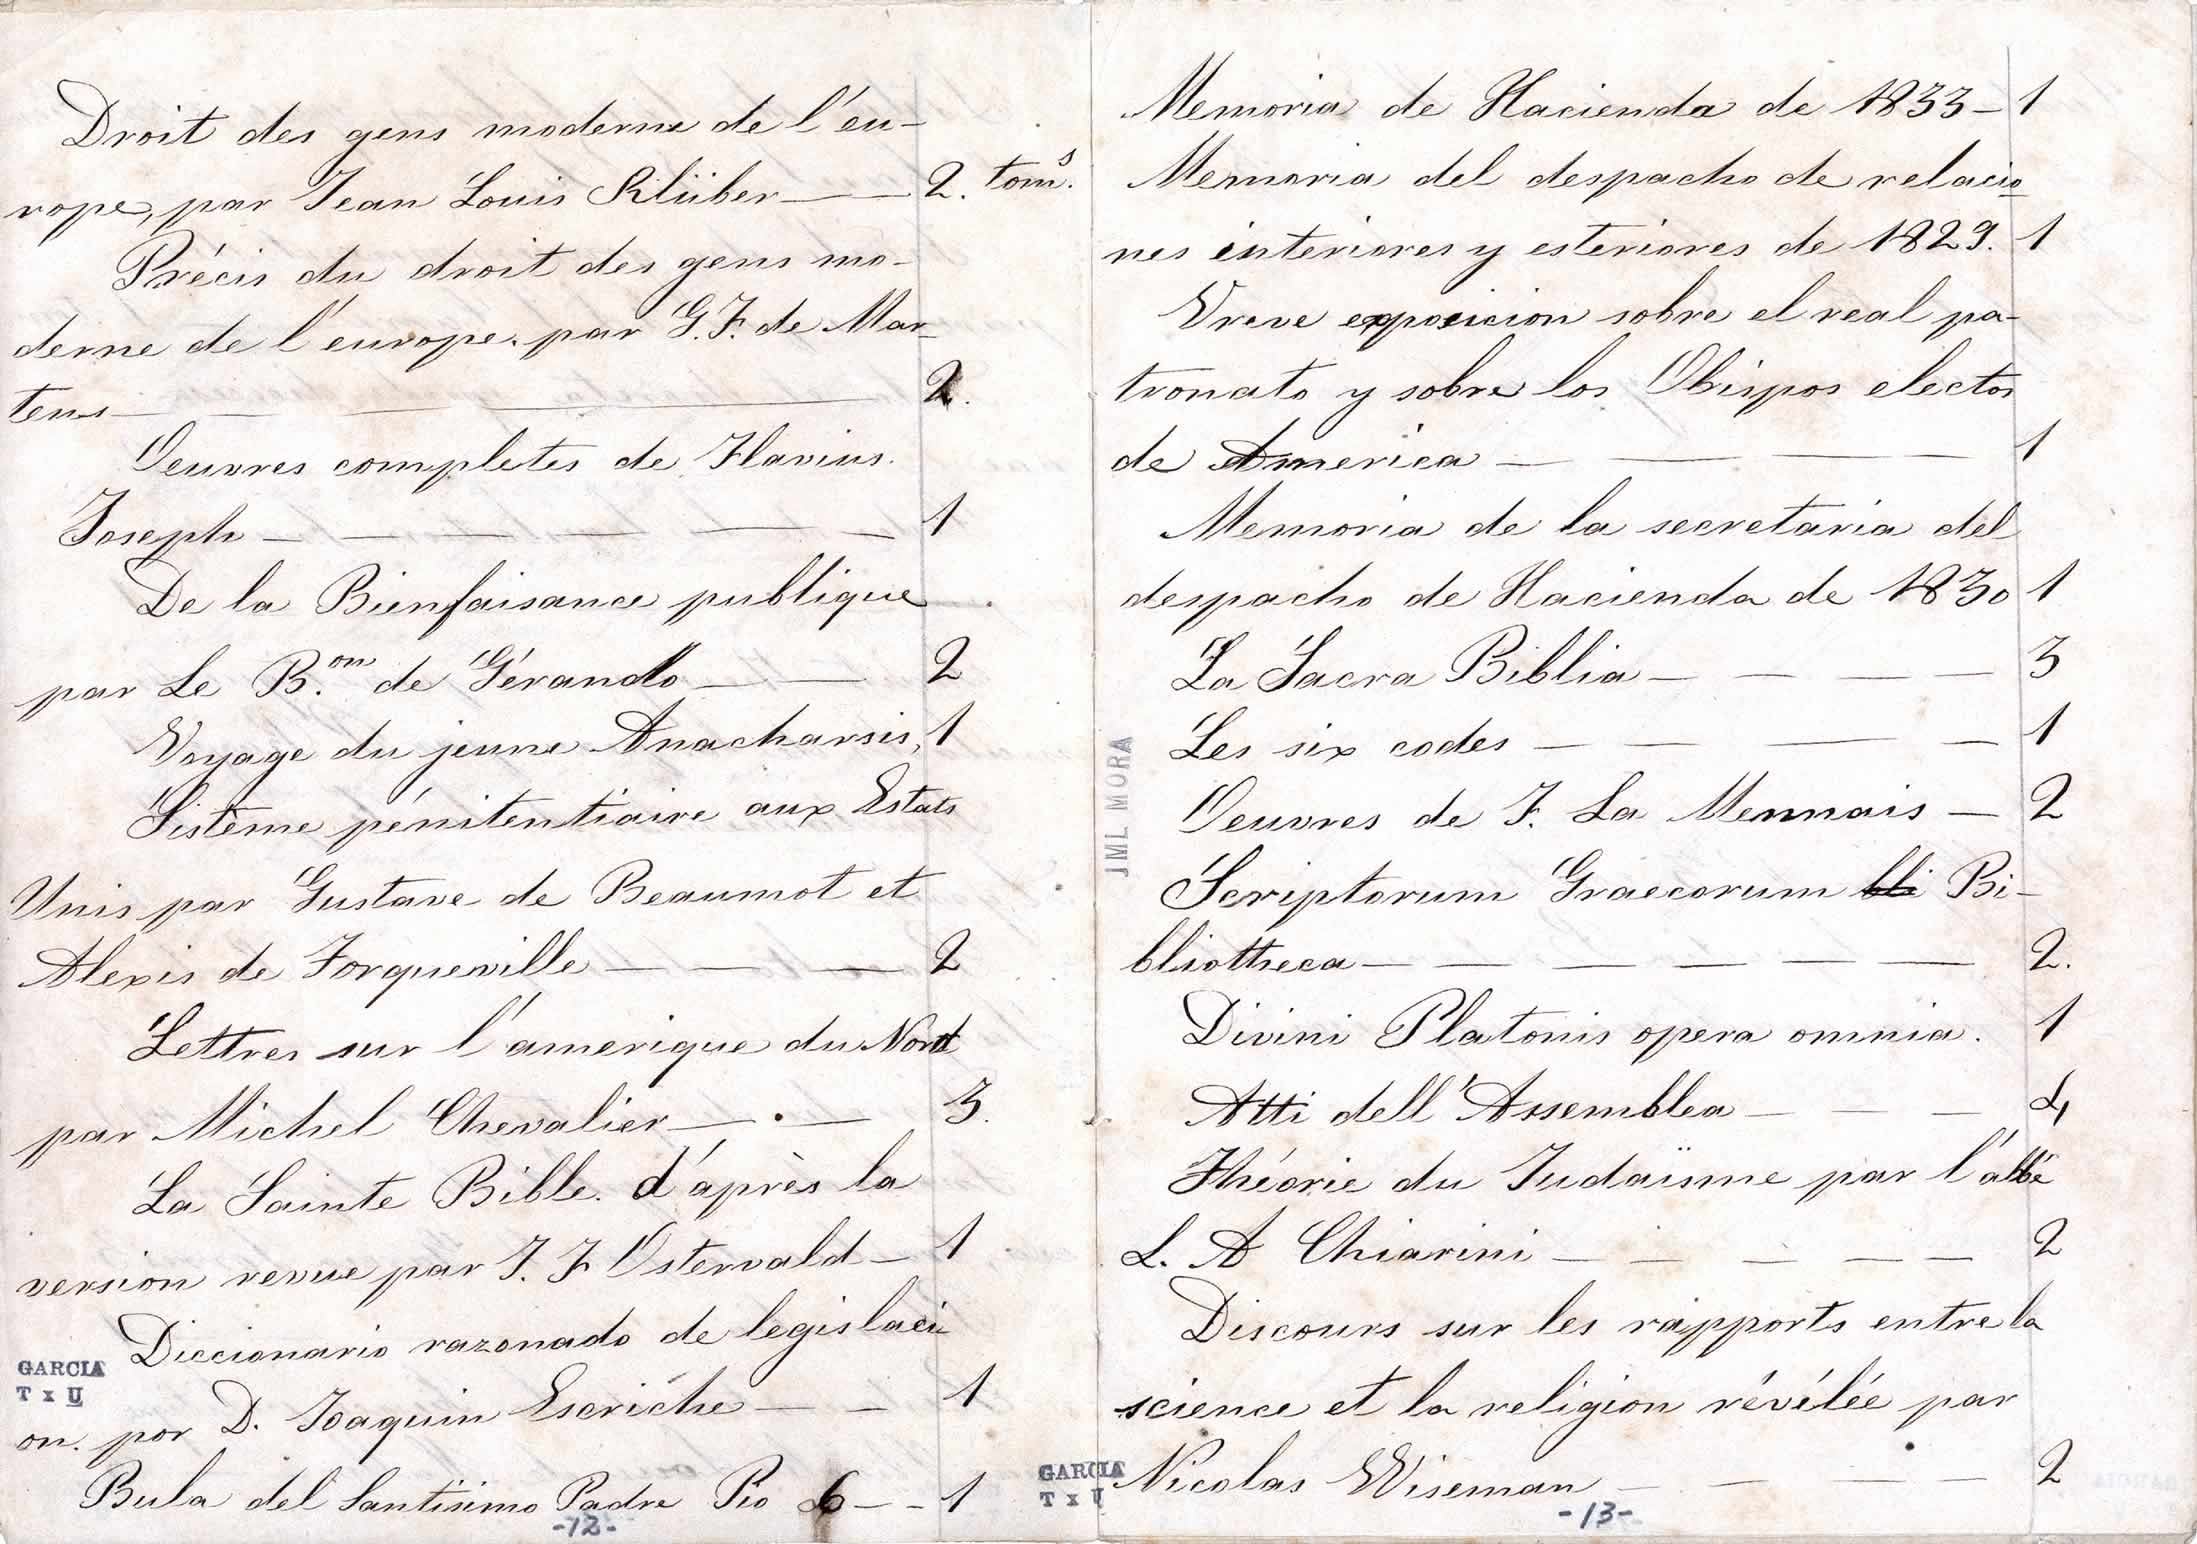 Droit des gens moderne de l'eu-
rope, par Jean Louis Klüber — — 2. tom.s
Précis du droit des gens mo-
derne de l'europe. par G. F. de Mar-
tens — — — — 2.
Oeuvres completes de Flavius.
Joseph — — — — — — 1
De la Bienfaisance publique
par Le B.on de Gérando — — 2
Voyage du jeune Anacharsis, 1
Sistème pénitentiaire aux Estats
Unis par Gustave de Beaumot et
Alexis de Torqueville — — — 2
Lettres sur l'amerique du Nord
par Michel Chevalier — . — 3.
La Sainte Bible. d'après la
version revue par J. F. Ostervald — 1
Diccionario razonado de legislaci
on. por D. Joaquin Escriche — — 1
Bula del Santisimo Padre Pio 6 — - 1
-12-
GARCIA
T x U
Memoria de Hacienda de 1833 — 1
Memoria del despacho de relacio
nes interiores y esteriores de 1829. 1
Vreve exposicion sobre el real pa-
tronato y sobre los Obispos electos
de America — — — — 1
Memoria de la secretaria del
despacho de Hacienda de 1830 1
La Sacra Biblia — — — — 3
Les six codes — — — — 1
Oeuvres de F. La Mennais — 2
Scriptorum Graecorum bli Bi-
bliottheca — — — — — — 2.
Divini Platonis opera omnia. 1
Atti dell'Assemblea — — — 4
Théorie du Judaïsme par l'abbé
L. A Chiarini — — — — — 2
Discours sur les rapports entre la
science et la religion révélée par
Nicolas Wiseman — — — — 2
-13-
JML MORA
GARCIA
T x U
GARCIA